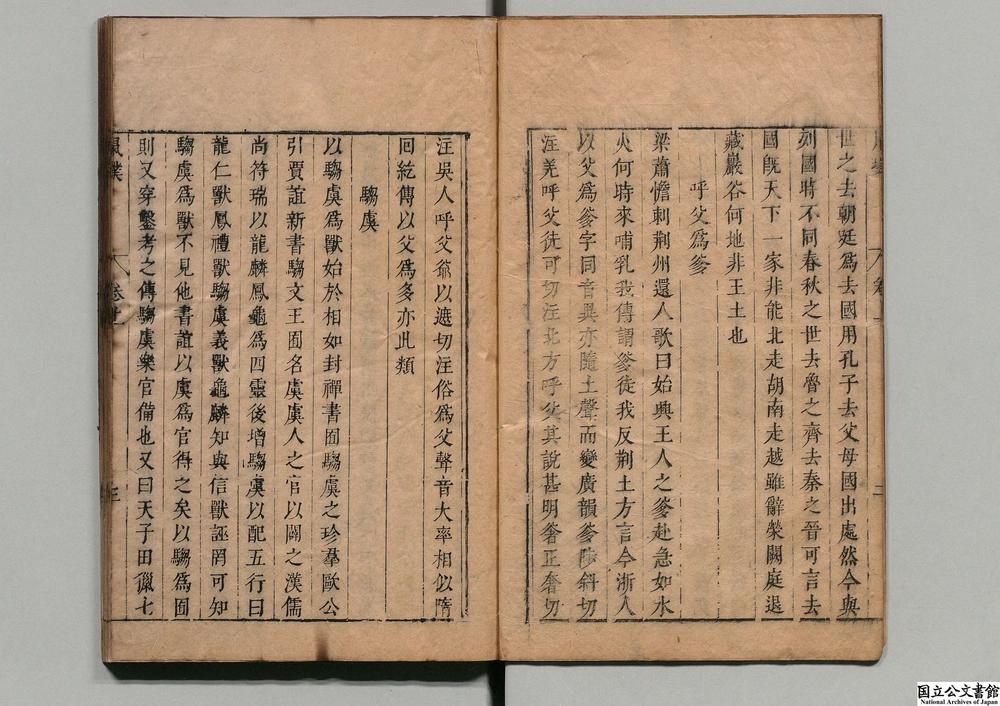 世之去朝廷爲去國用孔子去父母國出處然今與
列國時不同春秋之世去魯之齊去秦之晉可言去
國旣天下一家非能北走胡南走越雖辭榮闕庭退
藏巖谷何地非王土也
呼父爲爹
梁蕭憺刺荆州還人歌曰始興王人之爹赴急如水
火何時來哺乳我傳謂爹徒我反荆土方言今浙人
以父爲爹字同音異亦隨土聲而變廣韻爹陟斜切
注羌呼父徒可切注北方呼父其說甚明奢正奢切
注吳人呼父爺以遮切注俗爲父聲音大率相似隋
回紇傳以父爲多亦此類
騶虞
以騶虞爲獸始於相如封禪書囿騶虞之珍羣歐公
引賈誼新書騶文王囿名虞虞人之官以闢之漢儒
尚符瑞以龍麟鳳龜爲四靈後增騶虞以配五行曰
龍仁獸鳳禮獸騶虞義獸龜麟知與信獸誣罔可知
騶虞爲獸不見他書誼以虞爲官得之矣以騶爲囿
則又穿鑿考之傳騶虞樂官備也又曰天子田獵七
国立公文書館
National Archives of Japan